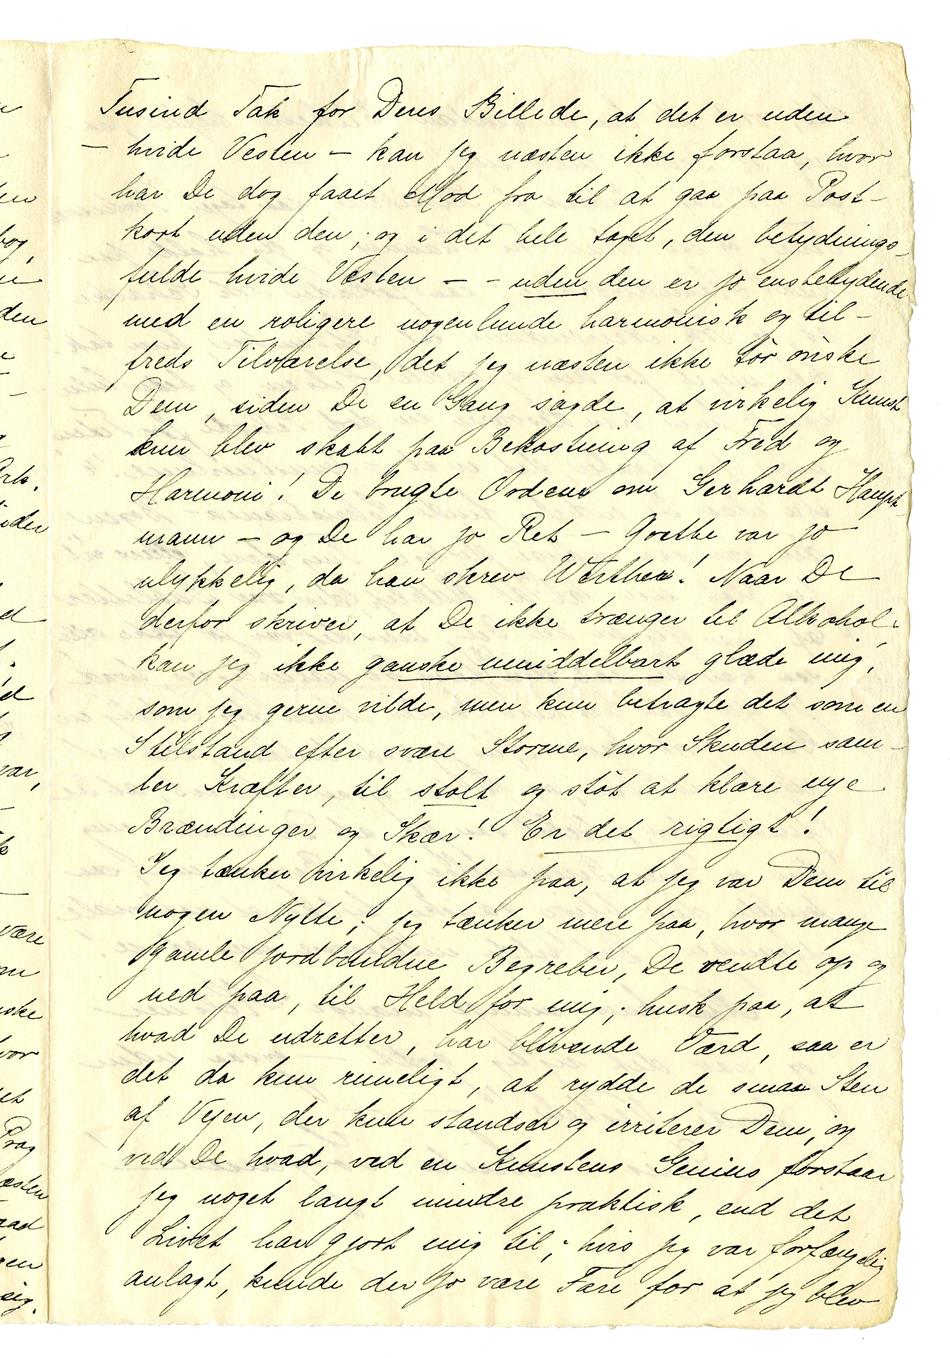 Tusind Tak for Deres Billede, at det er uden
- hvide Vesten - kan jeg næsten ikke forstaa, hvor
har De dog faaet Mod fra til at gaa paa Post-
kort uden den; og i det hele taget, den betydnings-
fulde hvide Vesten - - uden den er jo ensbetydende
med en roligere nogenlunde harmonisk og til-
freds Tilværelse, det jeg næsten ikke tør ønske
Dem, siden De en Gang sagde, at virkelig Kunst
kun blev skabt paa Bekostning af Fred og
Harmoni! De brugte Ordene om Gerhardt Haupt-
mann - og De har jo Ret - Goethe var jo
ulykkelig, da han skrev Werther! Naar De
derfor skriver, at De ikke trænger til Alkohol-
kan jeg ikke ganske umiddelbart glæde mig,
som jeg gerne vilde, men kun betragte det som en
Stilstand efter svære Storme, hvor Skuden sam-
ler Kræfter, til stolt og støt at klare nye
Brændinger og Skær! Er det rigtigt!
Jeg tænker virkelig ikke paa, at jeg var Dem til
nogen Nytte; jeg tænker mere paa, hvor mange
gamle jordbundne Begreber, De vendte op og
ned paa, til Held for mig; husk paa, at
hvad De udretter, har blivende Værd, saa er
det da kun rimeligt, at rydde de smaa Sten
af Vejen, der kun standser og irriterer Dem, og
ved De hvad, ved en Kunstens Genius forstaar
jeg noget langt mindre praktisk, end det
Livet har gjort mig til; hvis jeg var forfængelig
anlagt, kunde der jo være Fare for at jeg blev